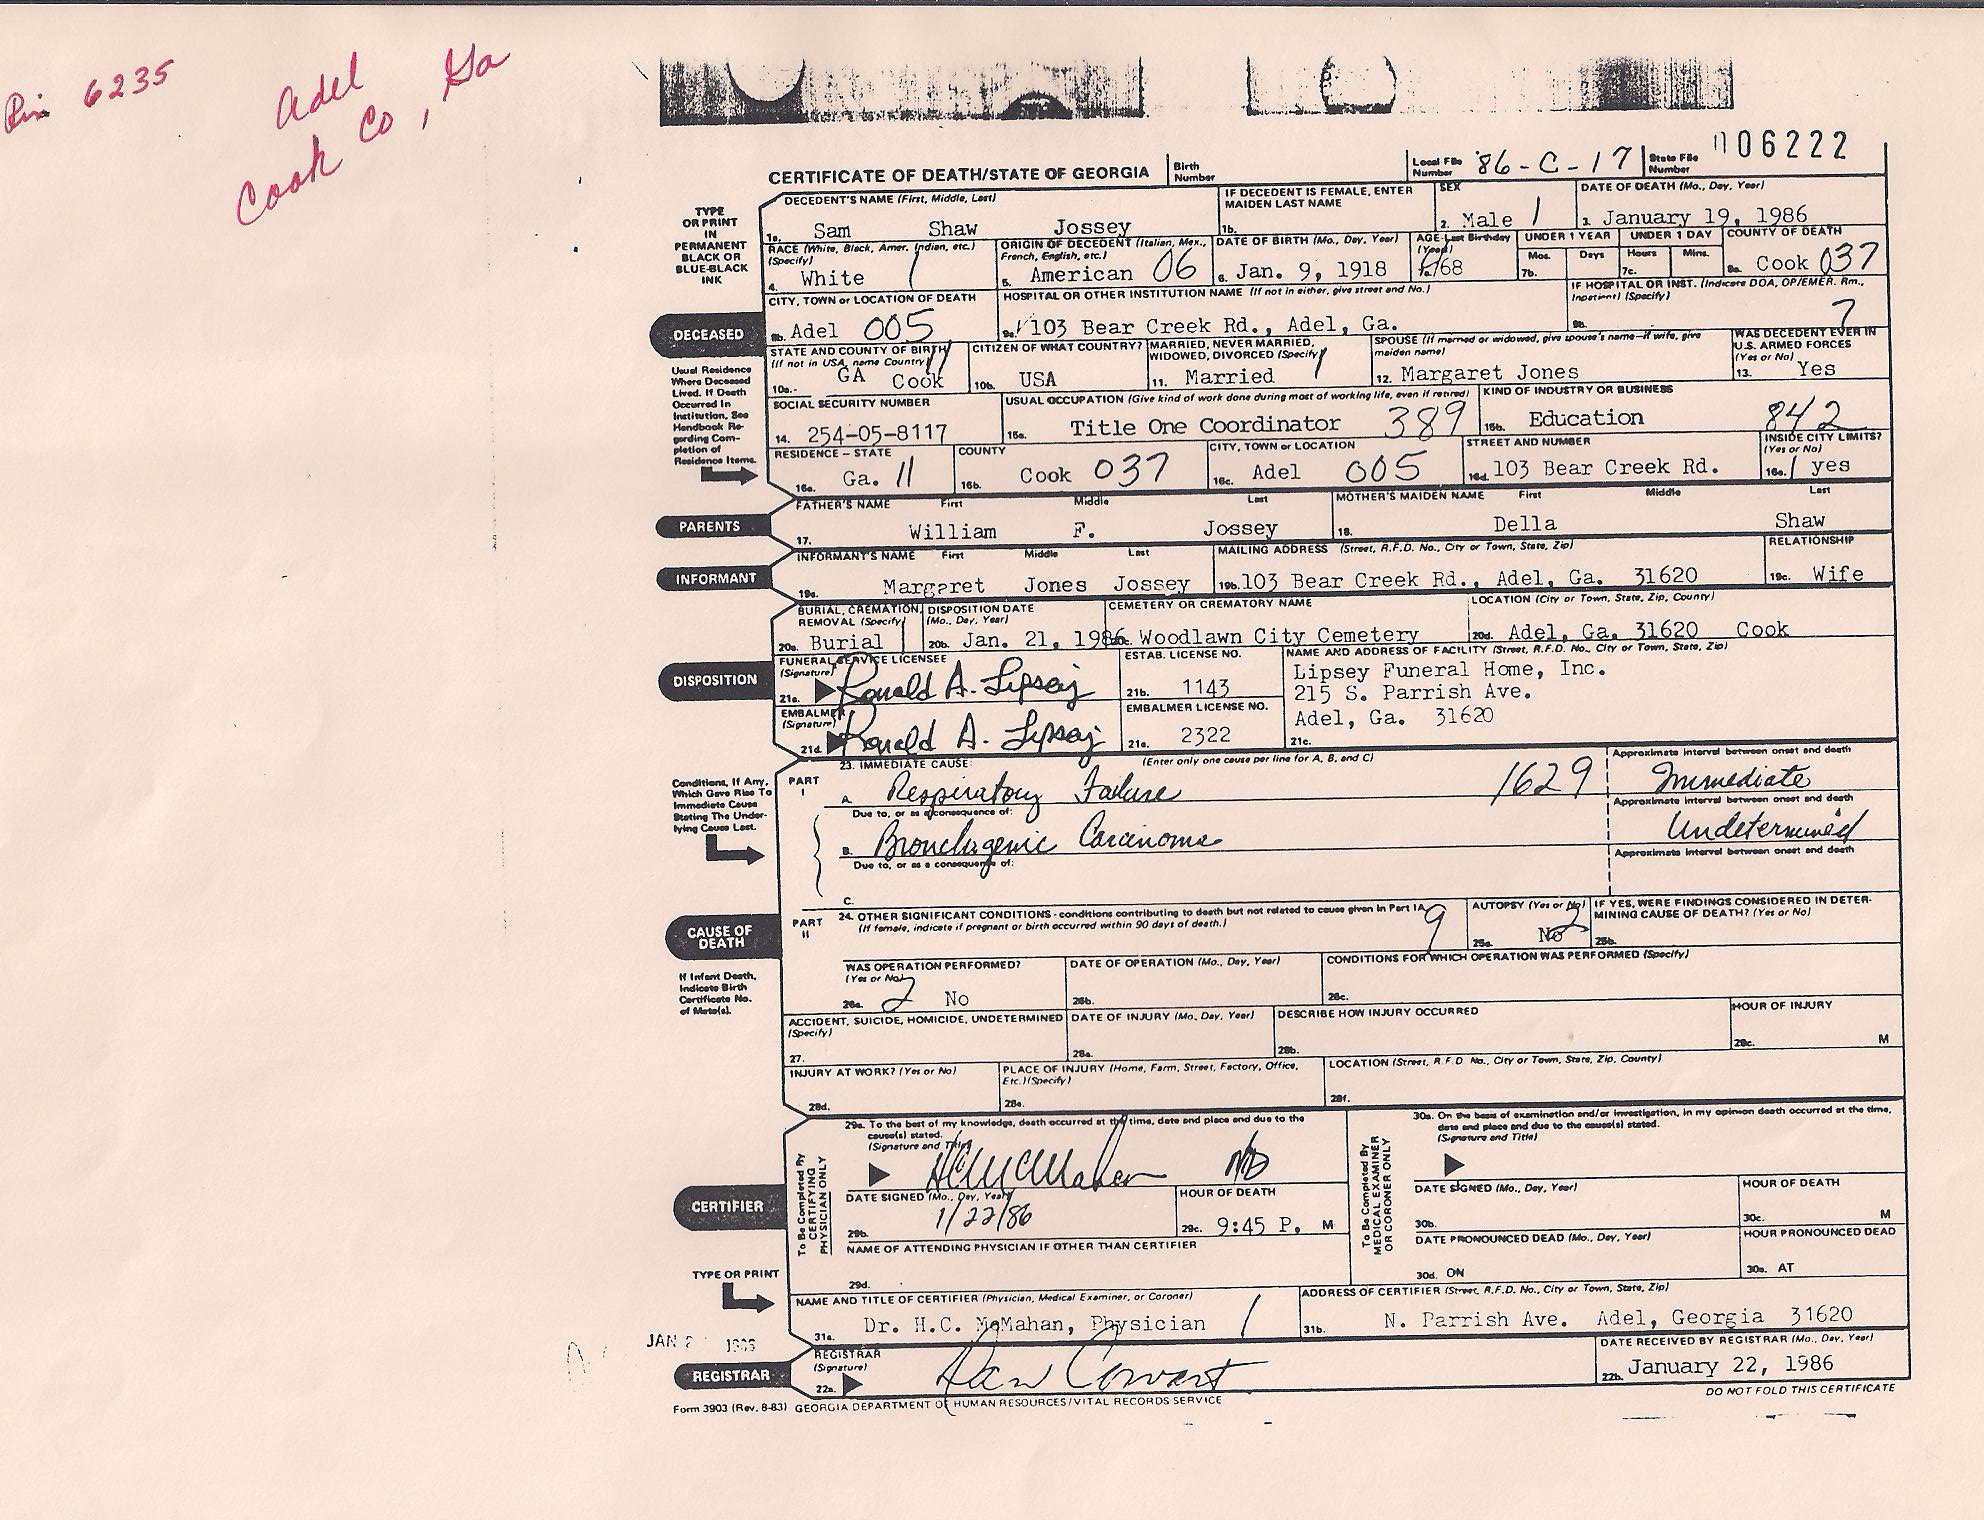 Pin 6235
Adel
Cook Co, Ga
006222
CERTIFICATE OF DEATH/STATE OF GEORGIA
Birth Number
Local File Number 86-C-17
State File Number
TYPE OR PRINT IN PERMANENT BLACK OR BLUE-BLACK INK
DECEDENT'S NAME (First, Middle, Last)
1a. Sam Shaw Jossey
IF DECEDENT IS FEMALE, ENTER MAIDEN LAST NAME
1b.
SEX
2. Male 1
DATE OF DEATH (Mo., Day, Year)
3. January 19, 1986
RACE (White, Black, Amer. Indian, etc.) (Specify)
4. White 1
ORIGIN OF DECEDENT (Italian, Mex., French, English, etc.)
5. American 06
DATE OF BIRTH (Mo., Day, Year)
6. Jan. 9, 1918
AGE-Last Birthday (Year)
7a. 68
UNDER 1 YEAR
Mos. Days
7b.
UNDER 1 DAY
Hours Mins.
7c.
COUNTY OF DEATH
8a. Cook 037
CITY, TOWN or LOCATION OF DEATH
8b. Adel 005
HOSPITAL OR OTHER INSTITUTION NAME (If not in either, give street and No.)
9a. 103 Bear Creek Rd., Adel, Ga.
IF HOSPITAL OR INST. (Indicate DOA, OP/EMER. Rm., Inpatient) (Specify)
9b. 7
DECEASED
Usual Residence Where Deceased Lived. If Death Occurred In Institution, See Handbook Regarding Completion of Residence Items.
STATE AND COUNTY OF BIRTH (If not in USA, name Country)
10a. GA Cook 11
CITIZEN OF WHAT COUNTRY?
10b. USA
MARRIED, NEVER MARRIED, WIDOWED, DIVORCED (Specify)
11. Married 1
SPOUSE (If married or widowed, give spouse's name—if wife, give maiden name)
12. Margaret Jones
WAS DECEDENT EVER IN U.S. ARMED FORCES (Yes or No)
13. Yes
SOCIAL SECURITY NUMBER
14. 254-05-8117
USUAL OCCUPATION (Give kind of work done during most of working life, even if retired)
15a. Title One Coordinator 389
KIND OF INDUSTRY OR BUSINESS
15b. Education 842
RESIDENCE – STATE
16a. Ga. 11
COUNTY
16b. Cook 037
CITY, TOWN or LOCATION
16c. Adel 005
STREET AND NUMBER
16d. 103 Bear Creek Rd.
INSIDE CITY LIMITS? (Yes or No)
16e. 1 yes
PARENTS
FATHER'S NAME First Middle Last
17. William F. Jossey
MOTHER'S MAIDEN NAME First Middle Last
18. Della Shaw
INFORMANT
INFORMANT'S NAME First Middle Last
19a. Margaret Jones Jossey
MAILING ADDRESS (Street, R.F.D. No., City or Town, State, Zip)
19b. 103 Bear Creek Rd., Adel, Ga. 31620
RELATIONSHIP
19c. Wife
DISPOSITION
BURIAL, CREMATION, REMOVAL (Specify)
20a. Burial 1
DISPOSITION DATE (Mo., Day, Year)
20b. Jan. 21, 1986
CEMETERY OR CREMATORY NAME
Woodlawn City Cemetery
LOCATION (City or Town, State, Zip, County)
20d. Adel, Ga. 31620 Cook
FUNERAL SERVICE LICENSEE (Signature)
21a. Ronald A. Lipsey
ESTAB. LICENSE NO.
21b. 1143
NAME AND ADDRESS OF FACILITY (Street, R.F.D. No., City or Town, State, Zip)
Lipsey Funeral Home, Inc.
215 S. Parrish Ave.
Adel, Ga. 31620
21c.
EMBALMER (Signature)
21d. Ronald A. Lipsey
EMBALMER LICENSE NO.
21e. 2322
Conditions, If Any, Which Gave Rise To Immediate Cause Stating The Underlying Cause Last.
PART I
23. IMMEDIATE CAUSE: (Enter only one cause per line for A, B, and C)
A. Respiratory Failure 1629
Approximate interval between onset and death
Immediate
Due to, or as a consequence of:
B. Bronchogenic Carcinoma
Approximate interval between onset and death
Undetermined
Due to, or as a consequence of:
C.
Approximate interval between onset and death
CAUSE OF DEATH
PART II
24. OTHER SIGNIFICANT CONDITIONS - conditions contributing to death but not related to cause given in Part 1A
(If female, indicate if pregnant or birth occurred within 90 days of death.) 9
AUTOPSY (Yes or No)
25a. No 2
IF YES, WERE FINDINGS CONSIDERED IN DETERMINING CAUSE OF DEATH? (Yes or No)
25b.
If Infant Death, Indicate Birth Certificate No. of Mate(s).
WAS OPERATION PERFORMED? (Yes or No)
26a. 2 No
DATE OF OPERATION (Mo., Day, Year)
26b.
CONDITIONS FOR WHICH OPERATION WAS PERFORMED (Specify)
26c.
ACCIDENT, SUICIDE, HOMICIDE, UNDETERMINED (Specify)
27.
DATE OF INJURY (Mo. Day, Year)
28a.
DESCRIBE HOW INJURY OCCURRED
28b.
HOUR OF INJURY
28c. M
INJURY AT WORK? (Yes or No)
28d.
PLACE OF INJURY (Home, Farm, Street, Factory, Office, Etc.) (Specify)
28e.
LOCATION (Street, R.F.D No., City or Town, State, Zip, County)
28f.
CERTIFIER
To Be Completed By CERTIFYING PHYSICIAN ONLY
29a. To the best of my knowledge, death occurred at the time, date and place and due to the cause(s) stated.
(Signature and Title)
HC McMahan MD
DATE SIGNED (Mo., Day, Year)
29b. 1/22/86
HOUR OF DEATH
29c. 9:45 P. M
NAME OF ATTENDING PHYSICIAN IF OTHER THAN CERTIFIER
29d.
To Be Completed By MEDICAL EXAMINER OR CORONER ONLY
30a. On the basis of examination and/or investigation, in my opinion death occurred at the time, date and place and due to the cause(s) stated.
(Signature and Title)
DATE SIGNED (Mo., Day, Year)
30b.
HOUR OF DEATH
30c. M
DATE PRONOUNCED DEAD (Mo., Day, Year)
30d. ON
HOUR PRONOUNCED DEAD
30e. AT
TYPE OR PRINT
NAME AND TITLE OF CERTIFIER (Physician, Medical Examiner, or Coroner)
31a. Dr. H.C. McMahan, Physician 1
ADDRESS OF CERTIFIER (Street, R.F.D. No., City or Town, State, Zip)
31b. N. Parrish Ave. Adel, Georgia 31620
JAN 2 1986
REGISTRAR
REGISTRAR (Signature)
22a. Dan Cowart
DATE RECEIVED BY REGISTRAR (Mo., Day, Year)
22b. January 22, 1986
Form 3903 (Rev. 8-83) GEORGIA DEPARTMENT OF HUMAN RESOURCES/VITAL RECORDS SERVICE
DO NOT FOLD THIS CERTIFICATE